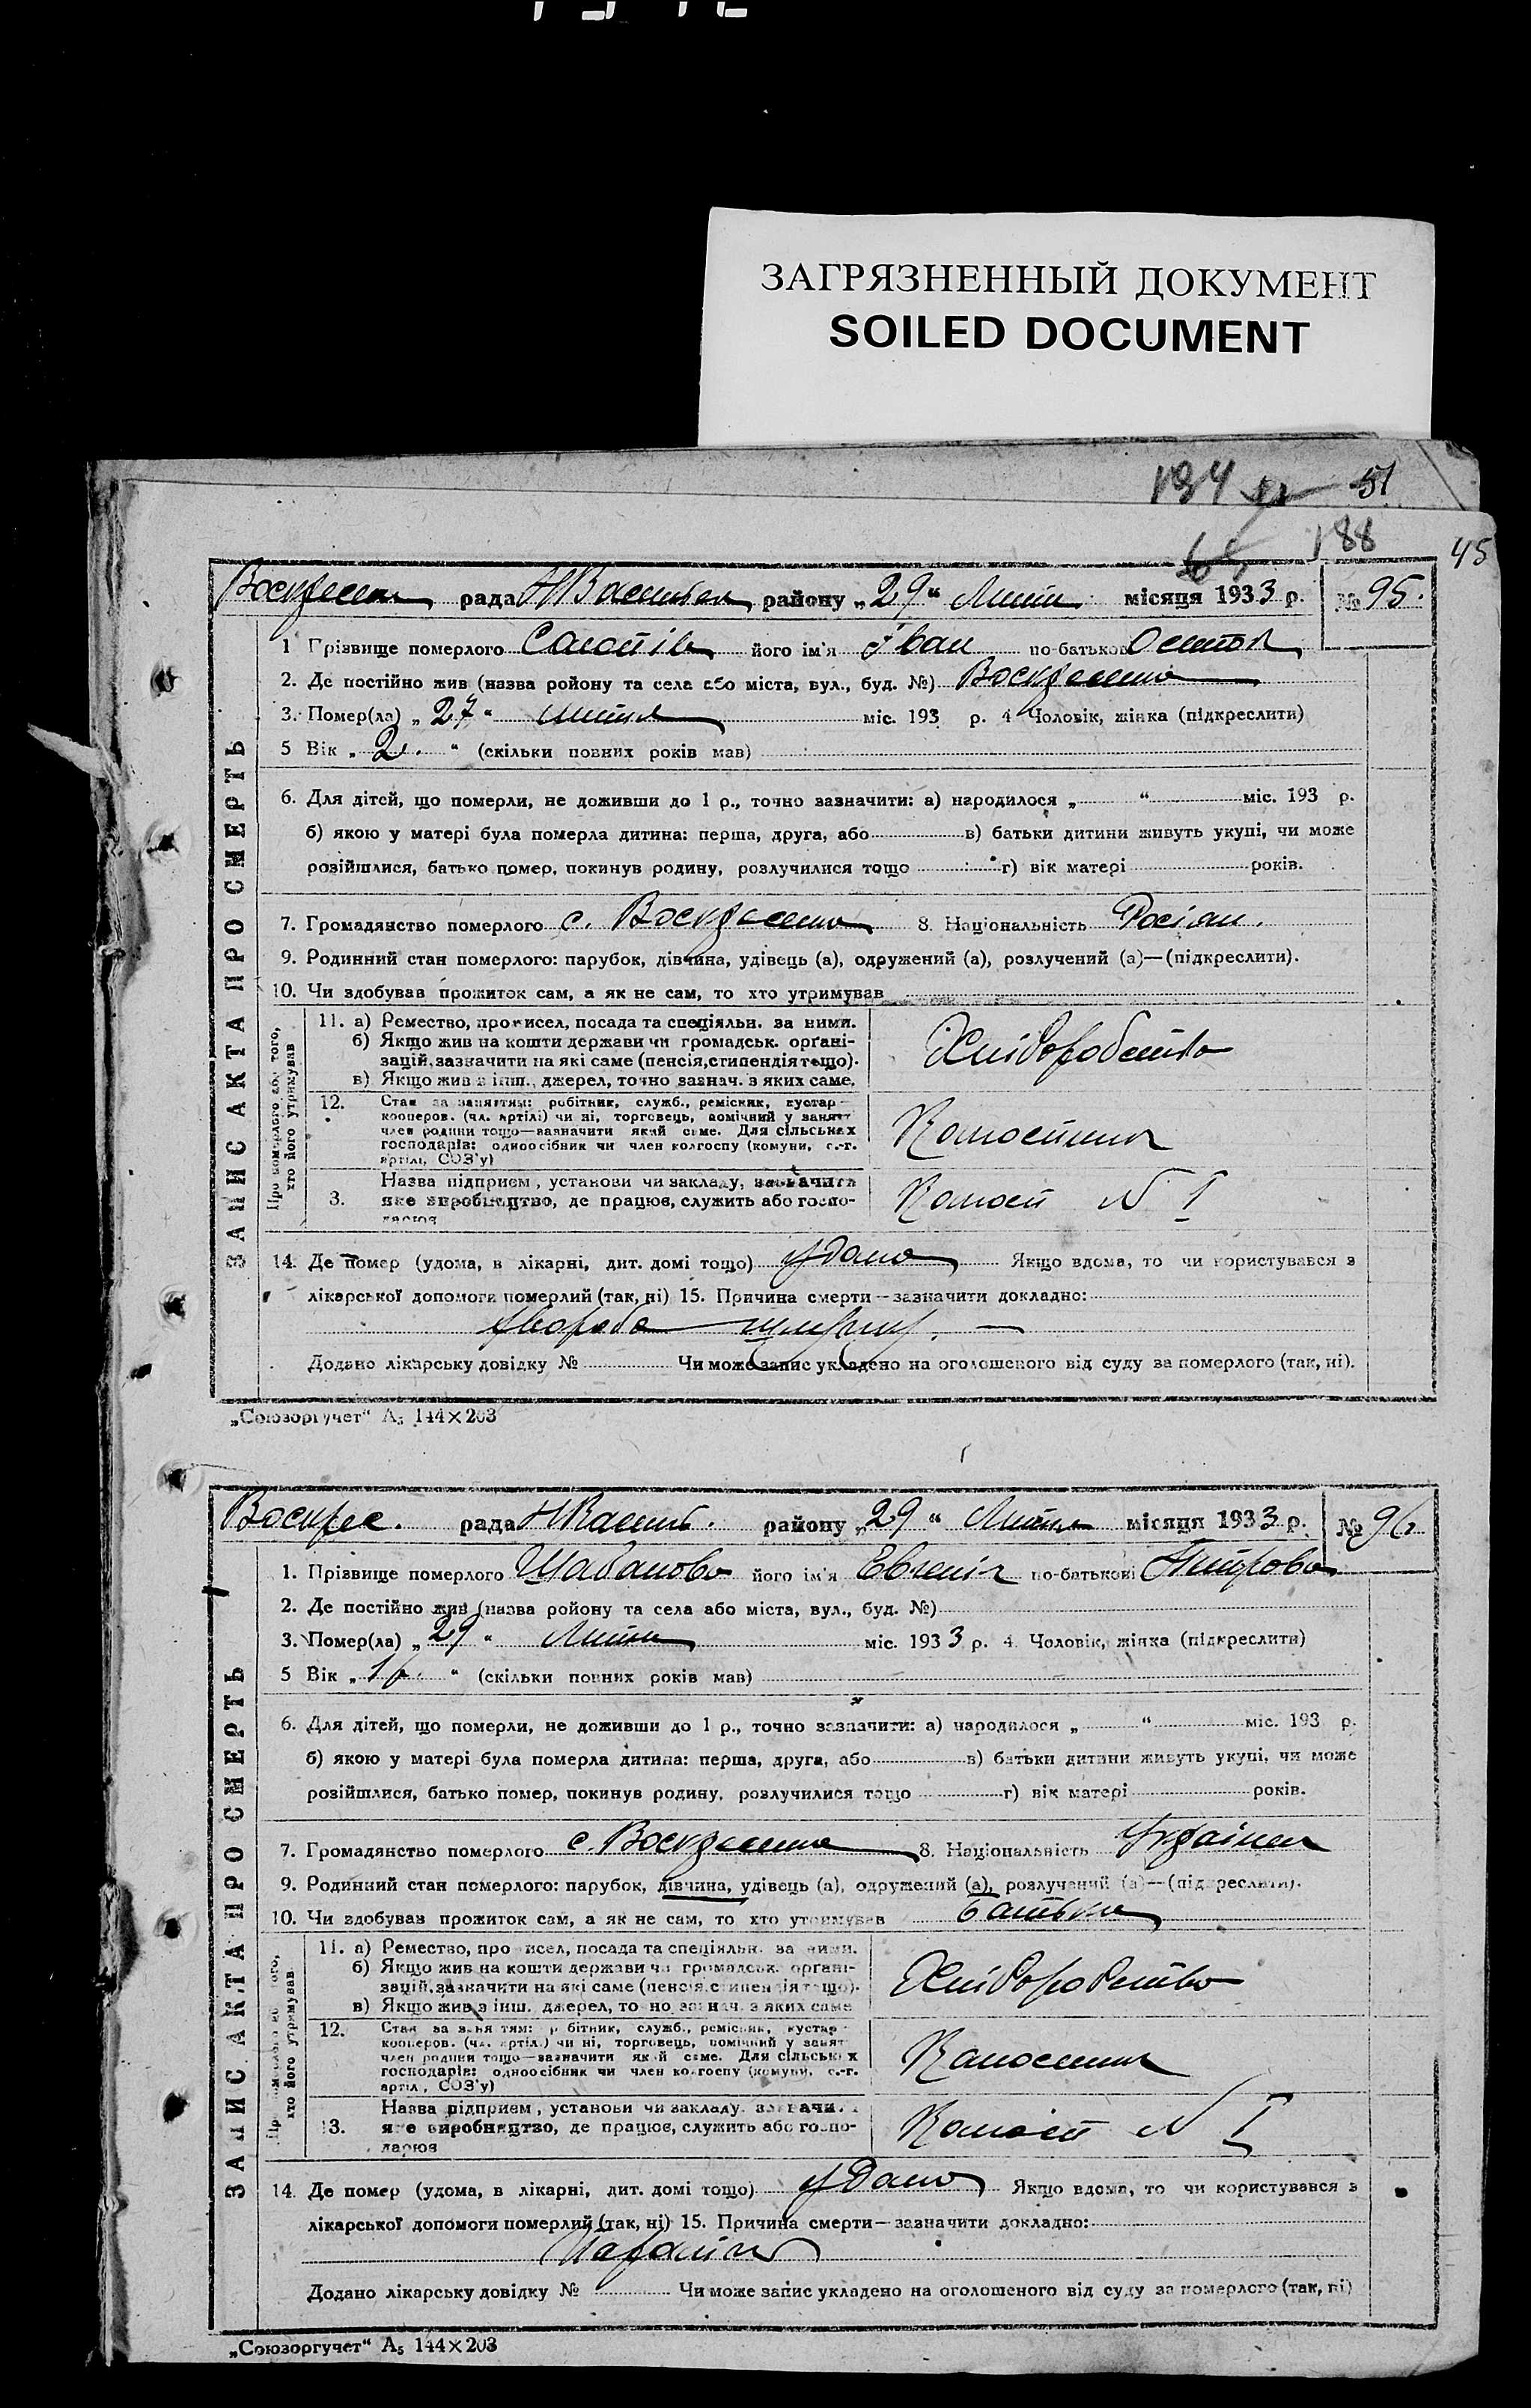 ЗАГРЯЗНЕННЫЙ ДОКУМЕНТ
SOILED DOCUMENT
194 51
188 45
рада район у „29“ Липня місяця 1933 р. № 95.
1 Грізвище померлого його ім'я Іван по-батькові
2. Де постійно жив (назва ройону та села або міста, вул., буд. №)
3. Помер(ла) „27“ липня міс. 193 р. 4 Чоловік, жінка (підкреслити)
5 Вік „2.“ (скільки повних років мав)
6. Для дітей, що померли, не доживши до 1 р., точно зазначити: а) народилося „ “ міс. 193 р.
б) якою у матері була померла дитина: перша, друга, або в) батьки дитини живуть укупі, чи може
розійшлися, батько помер, покинув родину, розлучилися тощо г) вік матері років.
7. Громадянство померлого с. 8. Національність Росіян.
9. Родинний стан померлого: парубок, дівчина, удівець (а), одружений (а), розлучений (а)—(підкреслити).
10. Чи здобував прожиток сам, а як не сам, то хто утримував
11. а) Ремество, промисел, посада та спеціяльн. за ними.
б) Якщо жив на кошти держави чи громадськ. орґані-
зацій, зазначити на які саме (пенсія, стипендія тощо).
в) Якщо жив з інш., джерел, точно зазнач. з яких саме.
Хліборобство
12. Стан за заняттям: робітник, служб., ремісник, кустар
кооперов. (чл. артілі) чи ні, торговець, помічний у занятт
член родини тощо—зазначити який саме. Для сільських
господарів: одноосібник чи член колгоспу (комуни, с.-г.
артілі, СОЗ'у)
Назва підприєм., установи чи закладу, зазначити
3. яке виробництво, де працює, служить або госпо-
дарює
N I
14. Де помер (удома, в лікарні, дит. домі тощо) удома Якщо вдома, то чи користувався з
лікарської допомоги померлий (так, ні) 15. Причина смерти—зазначити докладно:
Додано лікарську довідку № Чи може запис укладено на оголошеного від суду за померлого (так, ні).
„Союзоргучет“ А5 144×203
ЗАПИС АКТА ПРО СМЕРТЬ
Про померлого або того, хто його утримував
Воскрес. рада район у „29“ Липня місяця 1933 р. № 96
1. Прізвище померлого Шабанова його ім'я Евгенія по-батькові
2. Де постійно жив (назва ройону та села або міста, вул., буд. №)
3. Помер(ла) „29“ Липня міс. 1933 р. 4 Чоловік, жінка (підкреслити)
5 Вік „ “ (скільки повних років мав)
6. Для дітей, що померли, не доживши до 1 р., точно зазначити: а) народилося „ “ міс. 193 р.
б) якою у матері була померла дитина: перша, друга, або в) батьки дитини живуть укупі, чи може
розійшлися, батько помер, покинув родину, розлучилися тощо г) вік матері років.
7. Громадянство померлого с. 8. Національність
9. Родинний стан померлого: парубок, дівчина, удівець (а), одружений (а), розлучений (а)—(підкреслити).
10. Чи здобував прожиток сам, а як не сам, то хто утримував батьки
11. а) Ремество, промисел, посада та спеціяльн. за ними.
б) Якщо жив на кошти держави чи громадськ. орґані-
зацій, зазначити на які саме (пенсія, стипендія тощо).
в) Якщо жив з інш. джерел, точно зазнач. з яких саме
Хліборобство
12. Стан за заняттям: робітник, служб., ремісник, кустар
кооперов. (чл. артілі) чи ні, торговець, помічний у занят
член родини тощо—зазначити який саме. Для сільських
господарів: одноосібник чи член колгоспу (комуни, с.-г.
артіл, СОЗ'у)
Назва підприєм, установи чи закладу, зазначи
13. яке виробництво, де працює, служить або госпо-
дарює
N I
14. Де помер (удома, в лікарні, дит. домі тощо) удома Якщо вдома, то чи користувався з
лікарської допомоги померлий (так, ні) 15. Причина смерти—зазначити докладно:
Додано лікарську довідку № Чи може запис укладено на оголошеного від суду за померлого (так, ні)
„Союзоргучет“ А5 144×203
ЗАПИС АКТА ПРО СМЕРТЬ